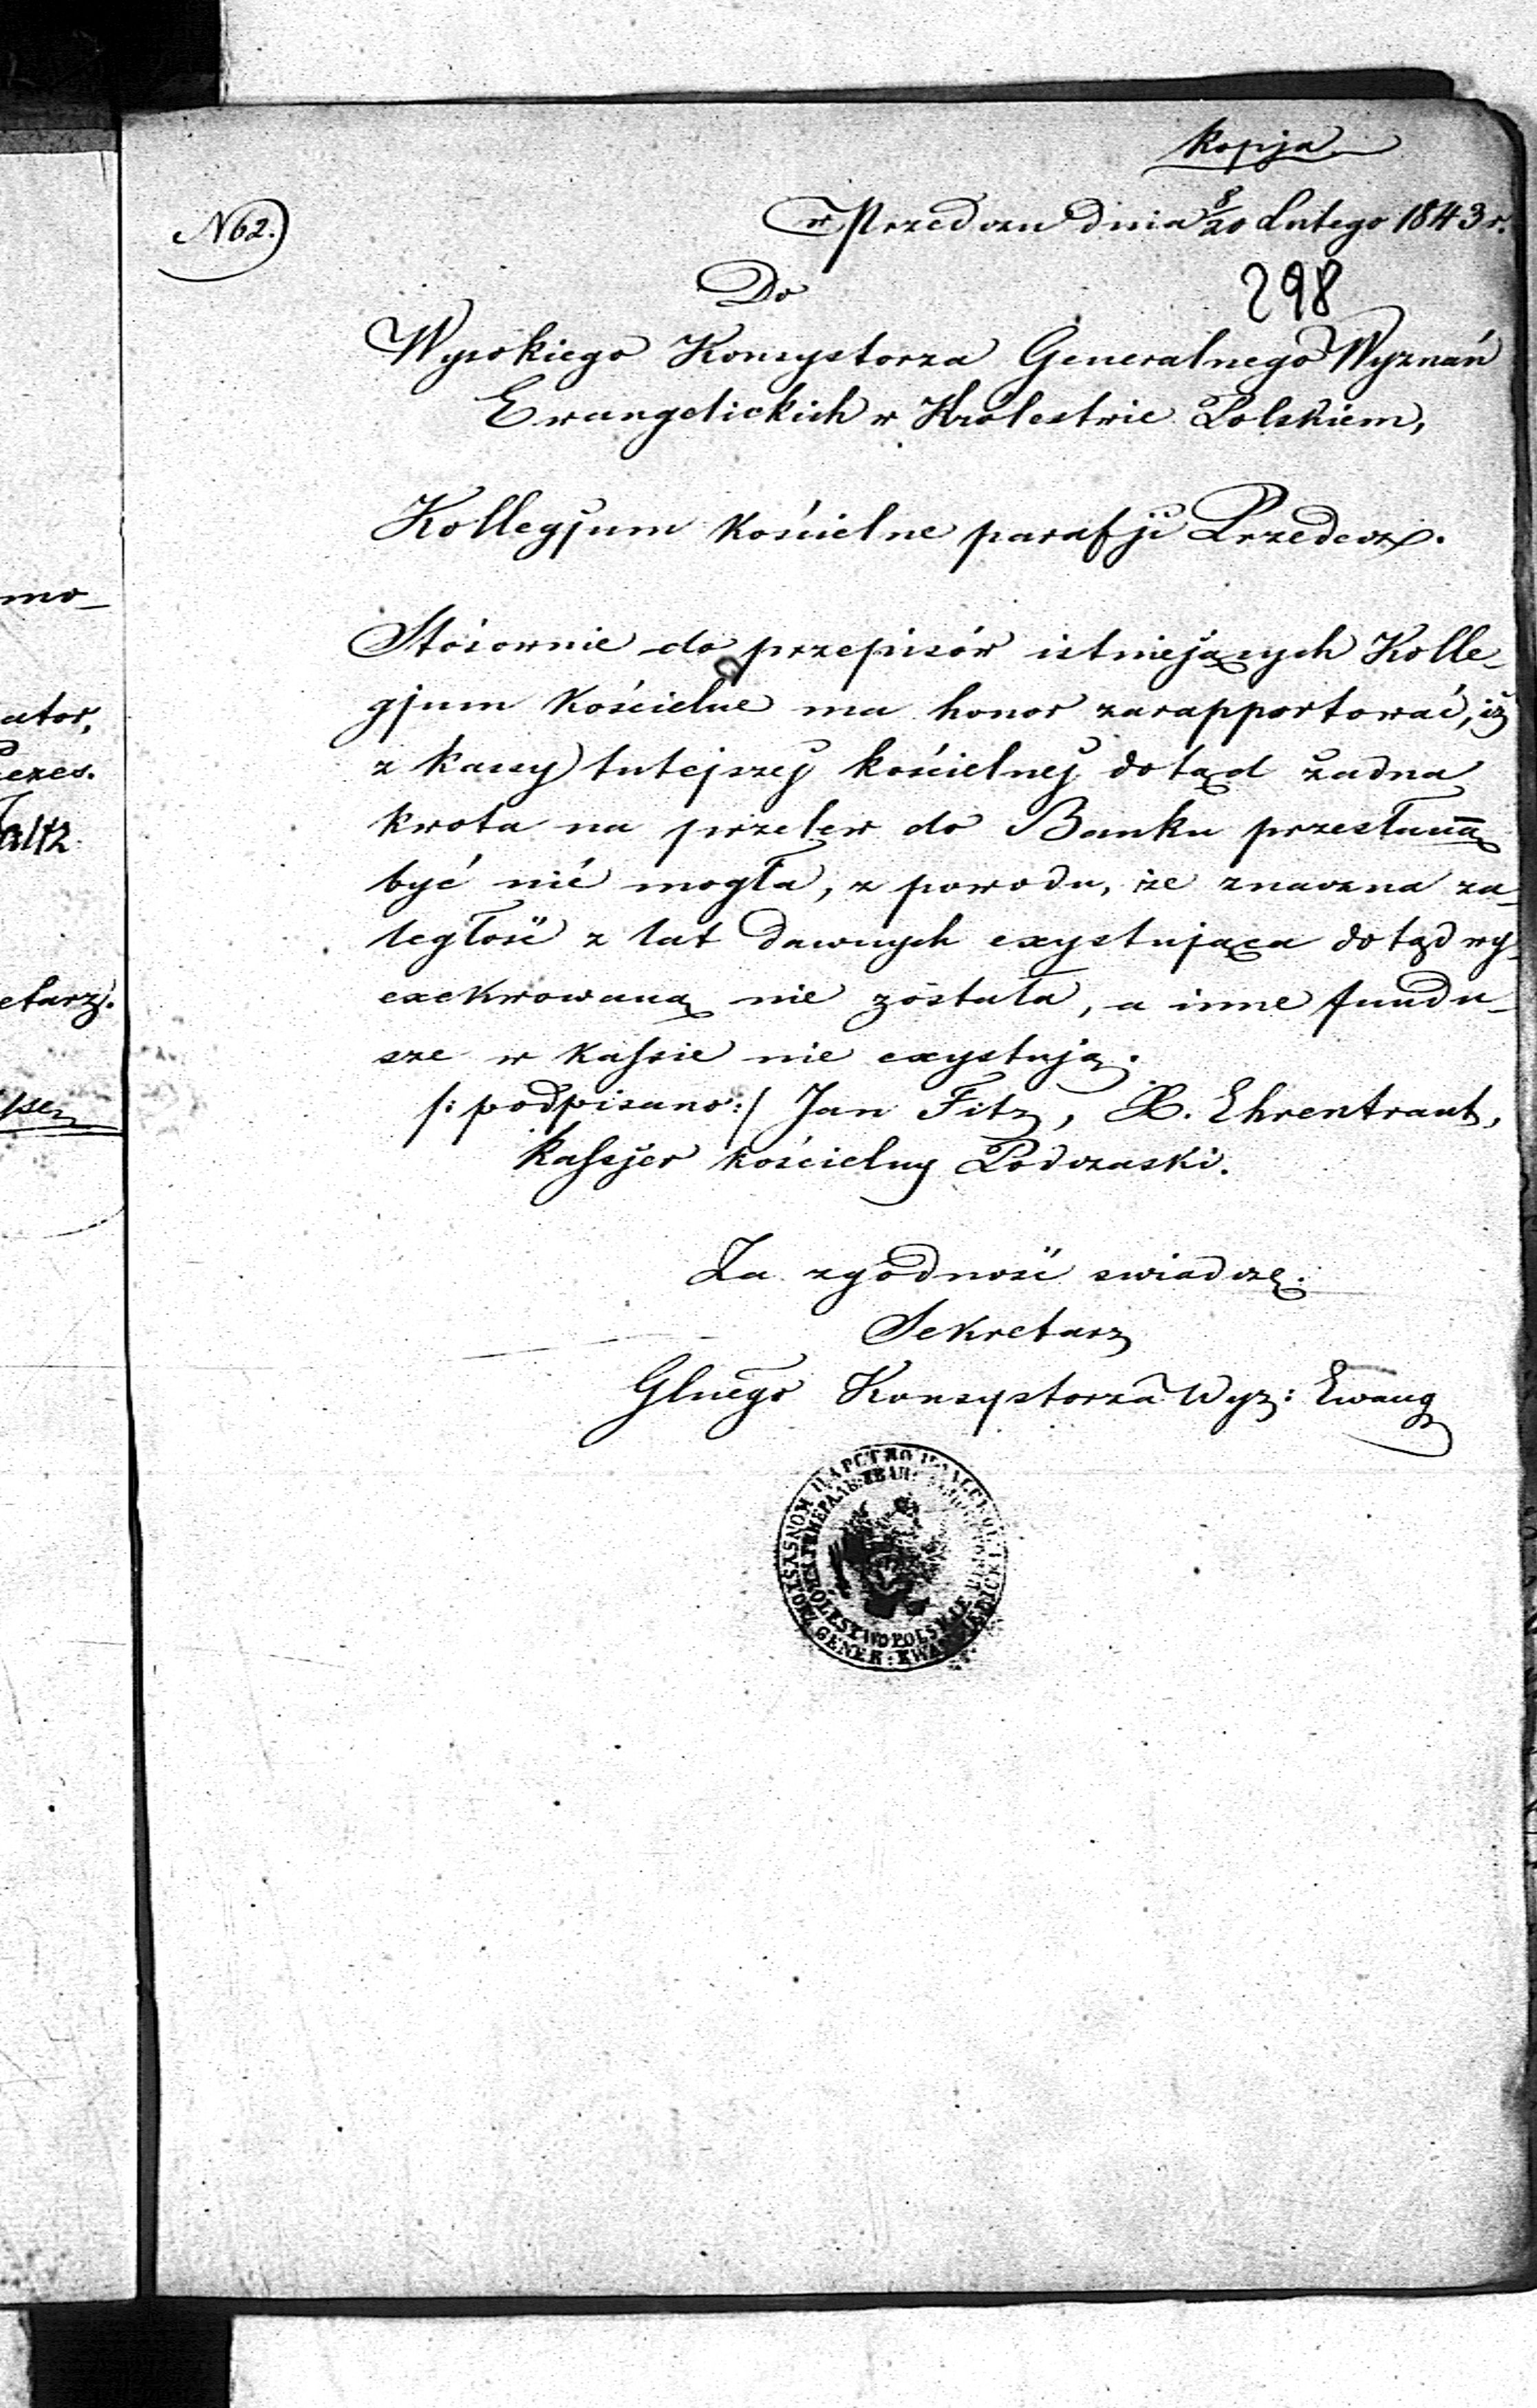 kopja
N62.
w Przedczu dnia 8/20 Lutego 1843 r.
298
Do
Wysokiego Konsystorza Generalnego Wyznań
Ewangelickich w Królestwie Polskiem,
Kollegjum Kościelne parafji Przedecz.
Stósownie do przepisów istniejących Kolle-
gjum Kościelne ma honor zarapportować, iż
z kassy tutejszej kościelnej dotąd żadna
kwota na przelew do Banku przesłaną
być nié mogła, z powodu, że znaczna za-
ległość z lat dawnych exystująca dotąd wy-
exekwowaną nie została, a inne fundu-
sze w kassie nie exystują.
/: podpisano :/ Jan Fitz, X. Ehrentraut,
Kassjer kościelny Podczaski.
Za zgodność swiadczę.
Sekretarz
Glnego Konsystorza Wyz: Ewang
KONSYSTORZ GENER: EWANGIELICKI
KRÓLESTWO POLSKIE
mo-
ator,
ezes.
etarz.